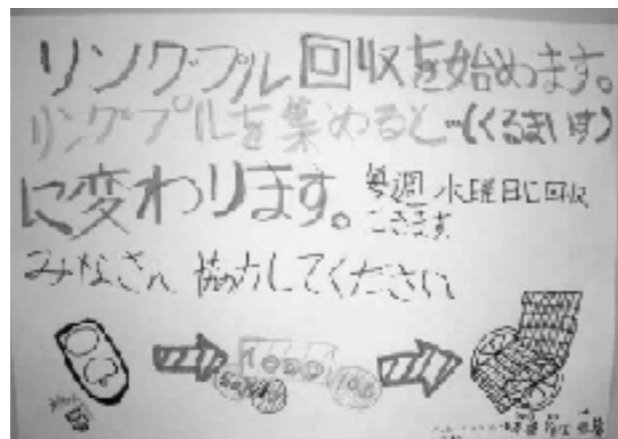 リングプル回収を始めます。
リングプルを集めると…(くるまいす)
に変わります。
毎週水曜日に回収
にきます
みなさん 協力してください
1000
100